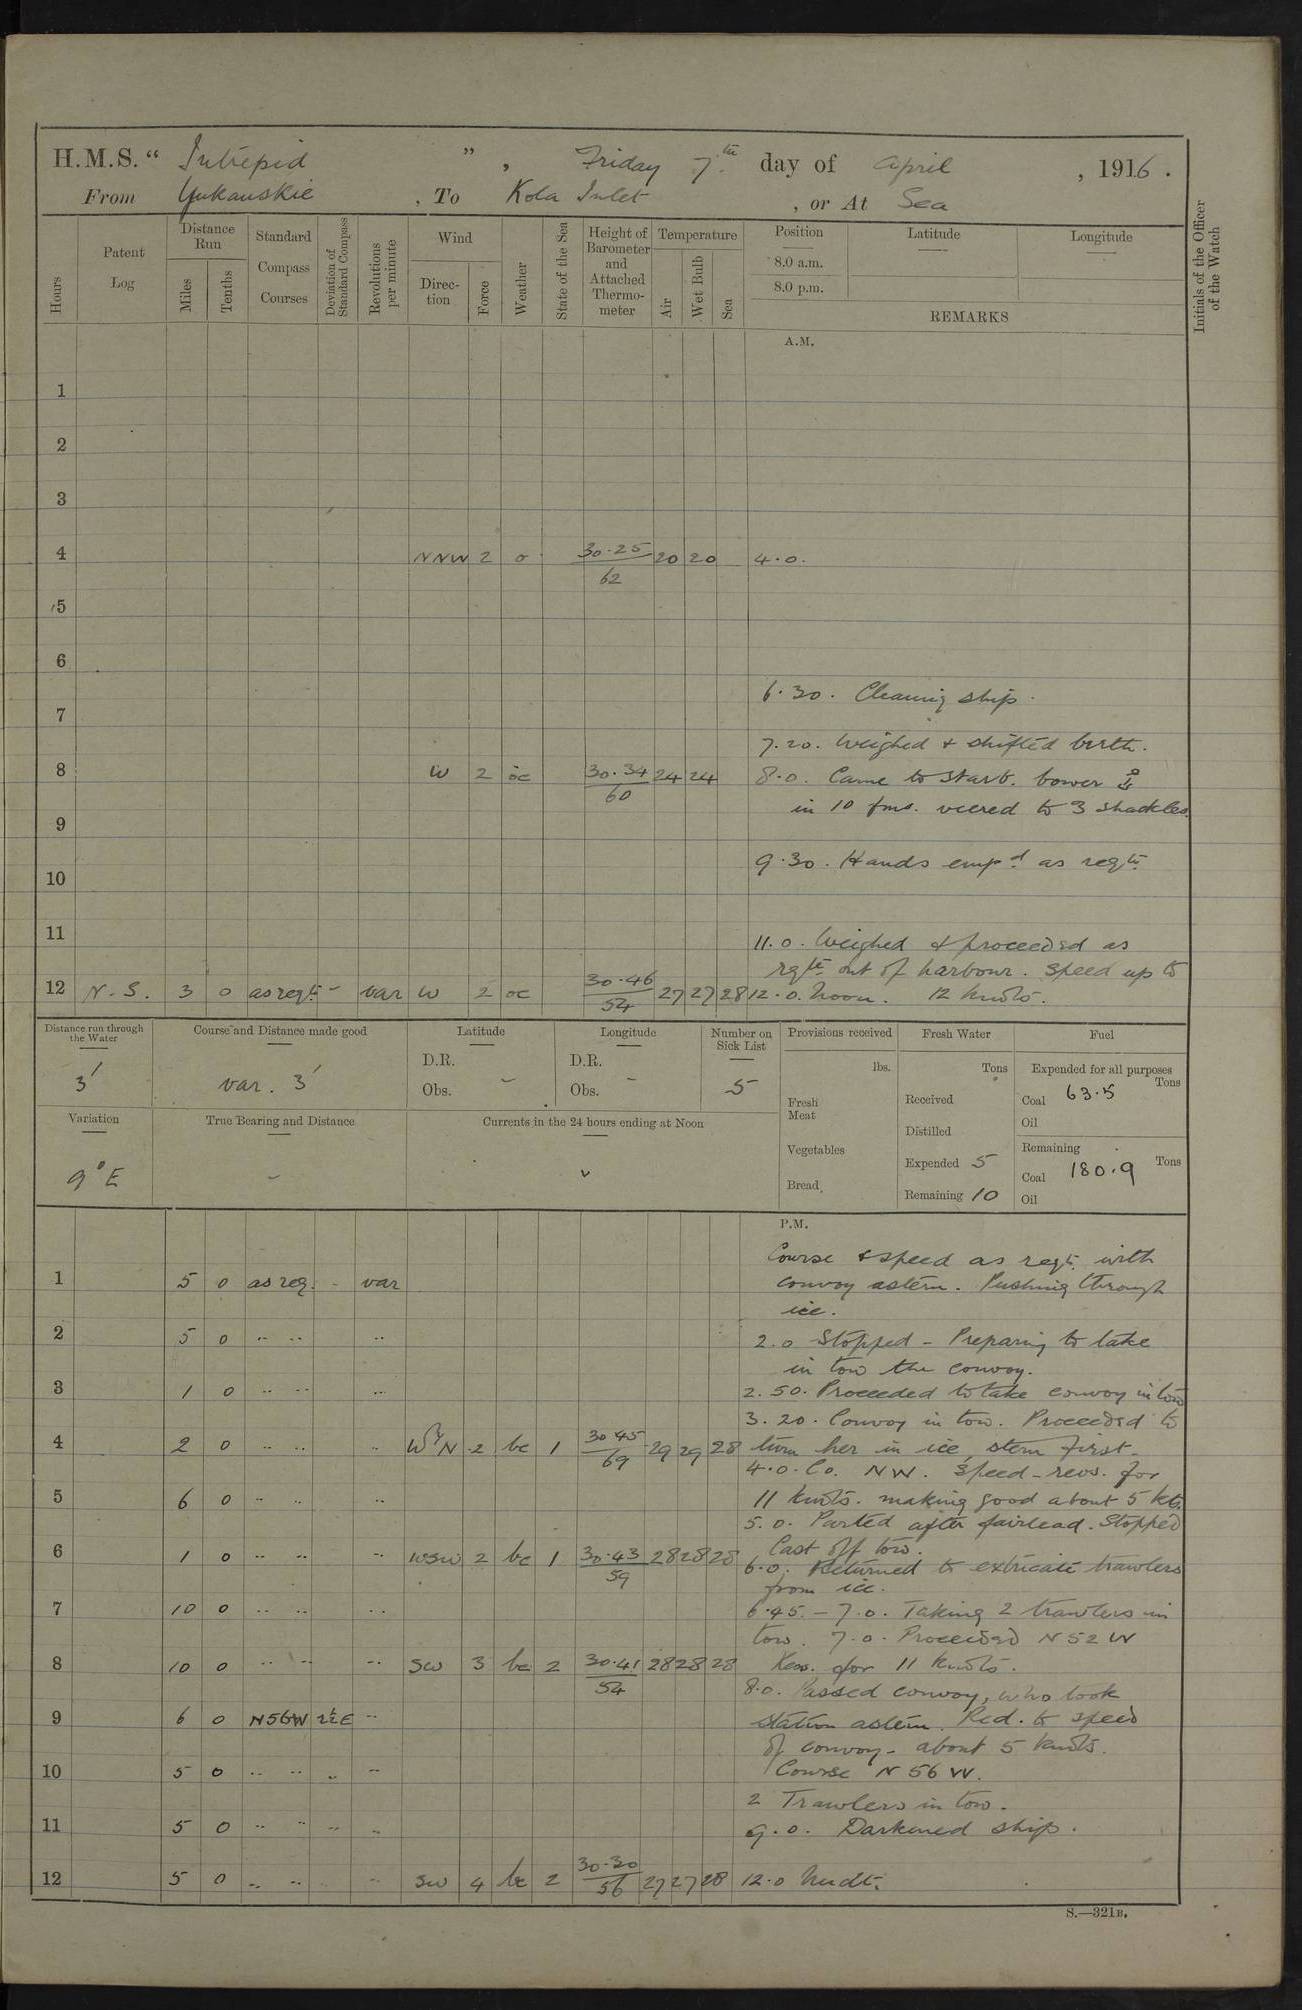 H.M.S. “ Intrepid ” , Friday 7th day of April , 1916 .
From Yukanskie , To Kola Inlet , or At Sea
Hours
Patent Log
Distance Run
Miles
Tenths
Standard Compass Courses
Deviation of Standard Compass
Revolutions per minute
Wind
Direction
Force
Weather
State of the Sea
Height of Barometer and Attached Thermometer
Temperature
Air
Wet Bulb
Sea
Position
8.0 a.m.
8.0 p.m.
Latitude
Longitude
REMARKS
Initials of the Officer of the Watch
A.M.
1
2
3
4 NNW 2 o 30.25/62 20 20 4.0.
5
6
6.30. Cleaning ship.
7
7.20. Weighed & shifted berth.
8 W 2 oc 30.34/60 24 24 8.0. Came to Starb. bower ⚓
in 10 fms. veered to 3 shackles.
9
9.30. Hands emp.d as reqte.
10
11
11.0. Weighed & proceeded as
rqte. out of harbour. Speed up to
12 N.S. 3 0 as reqte. - var W 2 oc 30.46/54 27 27 28 12.0. Noon. 12 knots.
Distance run through the Water
3'
Course and Distance made good
var. 3'
Latitude
D.R.
Obs. -
Longitude
D.R.
Obs. -
Number on Sick List
5
Provisions received
lbs.
Fresh Meat
Vegetables
Bread
Fresh Water
Tons
Received
Distilled
Expended 5
Remaining 10
Fuel
Expended for all purposes
Tons
Coal 63.5
Oil
Remaining
Tons
Coal 180.9
Oil
Variation
9° E
True Bearing and Distance
-
Currents in the 24 hours ending at Noon
P.M.
Course & speed as reqte. with
1 5 0 as req. - var convoy astern. Pushing through
ice.
2 5 0 .. .. .. 2.0 Stopped - Preparing to take
in tow the convoy.
3 1 0 .. .. .. 2.50. Proceeded to take convoy in tow
3.20. Convoy in tow. Proceeded to
4 2 0 .. .. .. WbyN 2 bc 1 30.45/69 29 29 28 turn her in ice, stern first.
4.0. Co. NW. Speed - revs. for
5 6 0 .. .. .. 11 knots. making good about 5 kts.
5.0. Parted after fairlead. Stopped
6 1 0 .. .. .. WSW 2 bc 1 30.43/59 28 28 28 Cast off tow.
6.0. Returned to extricate trawlers
from ice.
7 10 0 .. .. .. 6.45. - 7.0. Taking 2 trawlers in
tow. 7.0. Proceeded N52W
8 10 0 .. .. .. SW 3 bc 2 30.41/54 28 28 28 Revs. for 11 knots.
8.0. Passed convoy, who took
9 6 0 N56W 2½E .. station astern. Red. to speed
of convoy - about 5 knots.
10 5 0 .. .. .. .. Course N 56 W.
2 Trawlers in tow.
11 5 0 .. .. .. .. 9.0. Darkened ship.
12 5 0 .. .. .. SW 4 bc 2 30.30/56 27 27 28 12.0 Midt.
S.—321B.